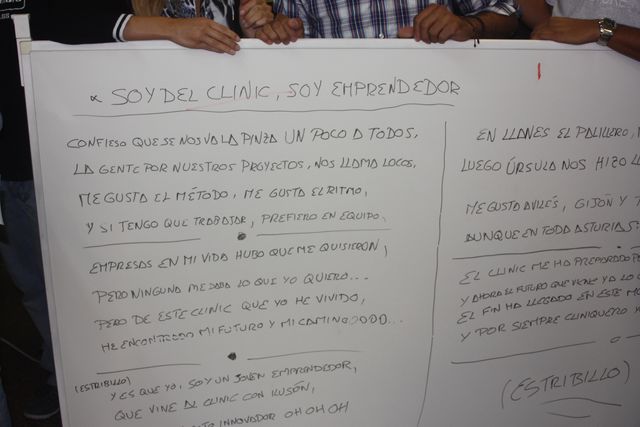 * SOY DEL CLINIC, SOY EMPRENDEDOR
CONFIESO QUE SE NOS VA LA PINZA UN POCO A TODOS,
LA GENTE POR NUESTROS PROYECTOS, NOS LLAMA LOCOS,
ME GUSTA EL MÉTODO, ME GUSTA EL RITMO,
Y SI TENGO QUE TRABAJAR, PREFIERO EN EQUIPO.
EMPRESAS EN MI VIDA HUBO QUE ME QUISIERON,
PERO NINGUNA ME DABA LO QUE YO QUIERO...
PERO DE ESTE CLINIC QUE YO HE VIVIDO,
HE ENCONTRADO MI FUTURO Y MI CAMINOOOO...
(ESTRIBILLO)
Y ES QUE YO, SOY UN JOVEN EMPRENDEDOR,
QUE VINE AL CLINIC CON ILUSIÓN,
INNOVADOR OH OH OH
EN LLANES EL PALILLERO,
LUEGO ÚRSULA NOS HIZO
ME GUSTA AVILÉS, GIJÓN Y
AUNQUE EN TODA ASTURIAS
EL CLINIC ME HA PREPARADO
Y AHORA EL FUTURO QUE VIENE YA LO
EL FIN HA LLEGADO EN ESTE
Y POR SIEMPRE CLINIQUERO Y
(ESTRIBILLO)